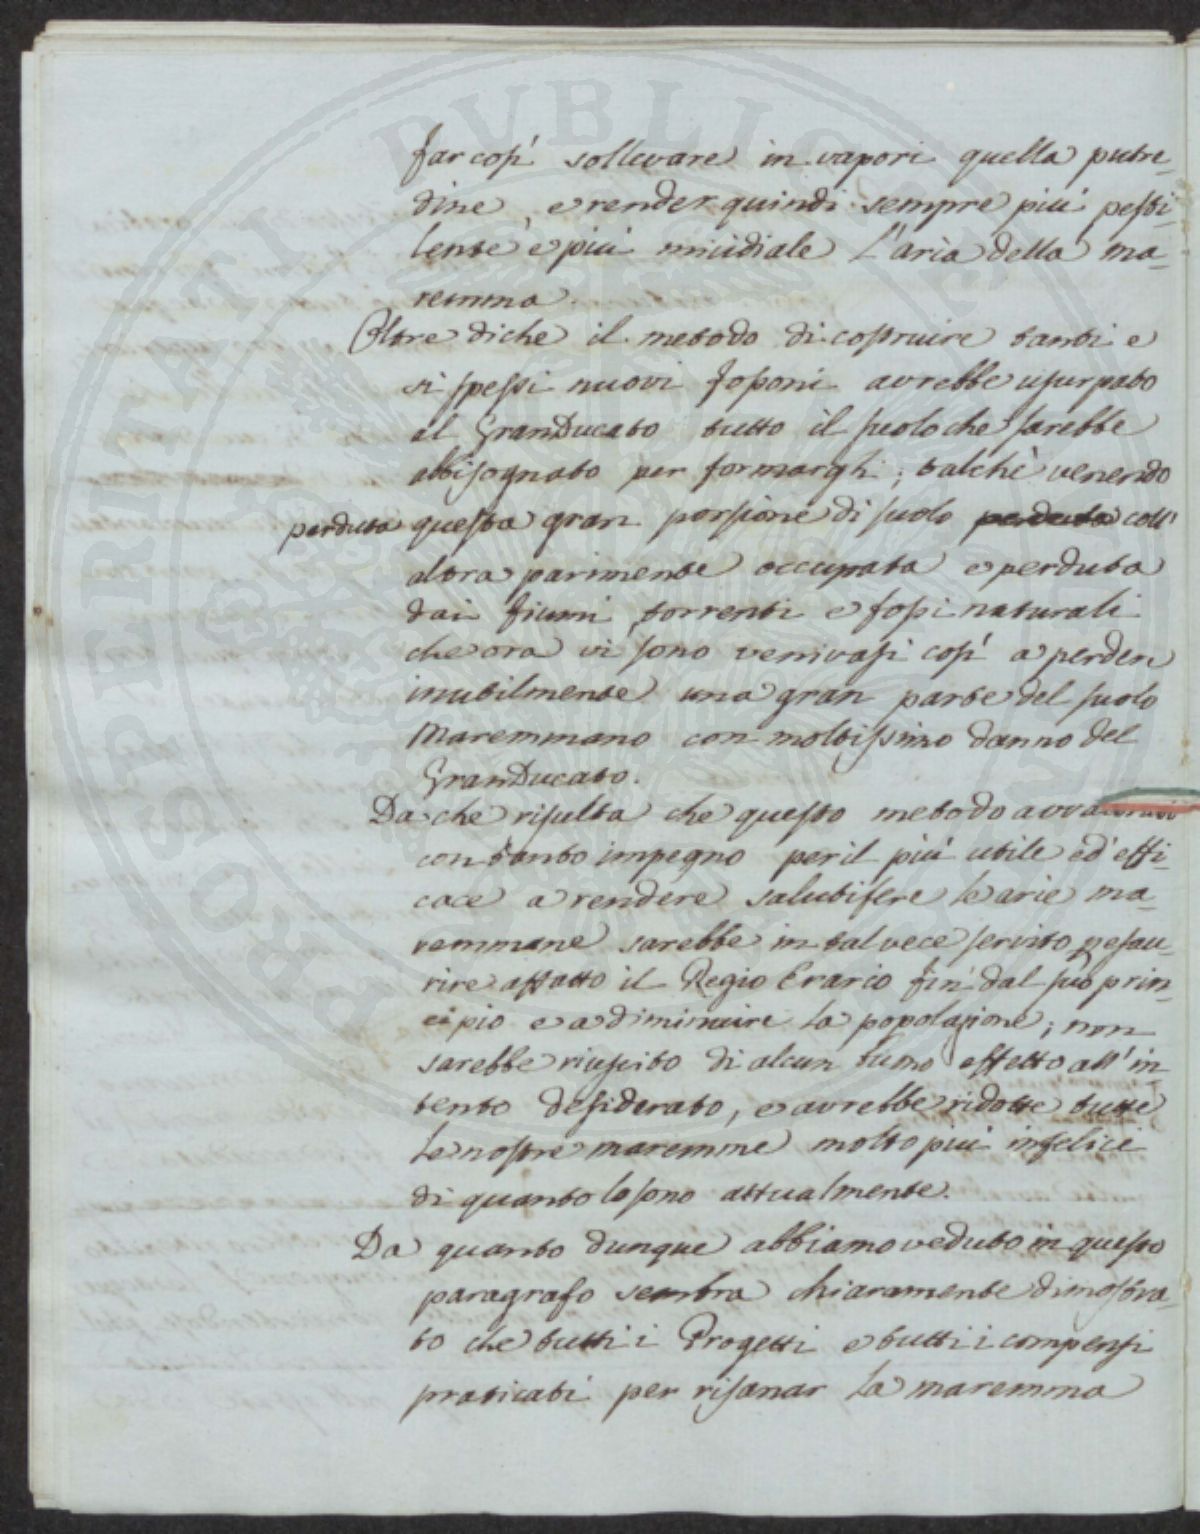 far così sollevare in vapori quella putre-
dine, e render quindi sempre più pesti-
lente e più micidiale l'aria della ma-
remma.
Oltre di che il metodo di costruire tanti e
si spessi nuovi fossoni avrebbe usurpato
al GranDucato tutto il suolo che sarebbe
abbisognato per formargli; talchè venendo
perduta questa gran porsione di suolo perduta coll'
altra parimente occupata e perduta
dai fiumi torrenti e fossi naturali
che ora vi sono venivasi così a perdere
inutilmente una gran parte del suolo
Maremmano con moltissimo danno del
GranDucato.
Da che risulta che questo metodo
con tanto impegno per il più utile ed effi-
cace a rendere salutifere le arie ma-
remmane sarebbe in tal vece servito
rire affatto il Regio Erario fin dal suo prin-
cipio e a diminuire la popolazione; non
sarebbe riuscito di alcun buono effetto all'in-
tento desiderato, e avrebbe ridotte tutte
le nostre maremme molto più infelici
di quanto lo sono attualmente.
Da quanto dunque abbiamo veduto in questo
paragrafo sembra chiaramente dimostra-
to che tutti i Progetti e tutti i compensi
praticati per risanar la maremma
PROSPERITATI PUBLICAE